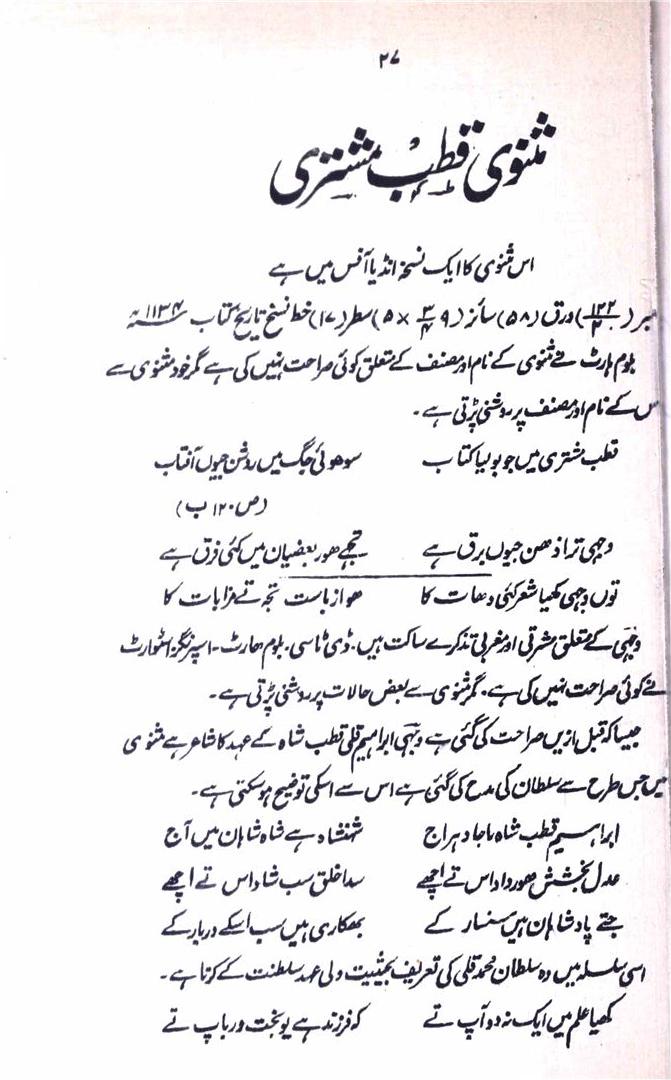 ۲۷
مثنوی قطب مشتری
اس مثنوی کا ایک نسخہ انڈیا آفس میں ہے
نمبر (۱۲۲/۲) ورق (۵۸) سائز (۹ ۳/۴ × ۵) سطر (۱۷) خط نسخ تاریخ کتاب ۱۱۳۴ھ
بلوم ہارٹ نے مثنوی کے نام اور مصنف کے متعلق کوئی صراحت نہیں کی ہے مگر خود مثنوی سے
اس کے نام اور مصنف پر روشنی پڑتی ہے۔
قطب مشتری میں جو بولیا کتاب سو ہوئی جگ میں روشن جیوں آفتاب
(ص ۱۲۰ ب)
وجہی ترا ذھن جیوں برق ہے تجھے ھور بعضیان میں کئی فرق ہے
توں وجہی کھیا شعر کئی دھات کا ھوا زباست تجہ تے خرابات کا
وجہی کے متعلق مشرقی اور مغربی تذکرے ساکت ہیں۔ ڈی ٹاسی۔ بلوم ھارٹ۔ اسپرنگر، اسٹوارٹ
نے کوئی صراحت نہیں کی ہے۔ مگر مثنوی سے بعض حالات پر روشنی پڑتی ہے۔
جیسا کہ قبل ازیں صراحت کی گئی ہے وجہی ابراہیم قلی قطب شاہ کے عہد کا شاعر ہے مثنوی
میں جس طرح سے سلطان کی مدح کی گئی ہے اس سے اسکی توضیح ہو سکتی ہے۔
ابراہیم قطب شاہ راجا دہراج شہنشاہ ہے شاہ شاہان میں آج
عدل بخشش ھور داد اس تے اچھے سدا خلق سب شاد اس تے اچھے
جتے پادشاہان ہیں سنسار کے بھکاری ہیں سب اسکے دربار کے
اسی سلسلہ میں وہ سلطان محمد قلی کی تعریف بحیثیت ولی عہد سلطنت کے کرتا ہے۔
کھیا علم میں ایک نہ دو آپ تے کہ فرزند ہے یو بخت ور باپ تے